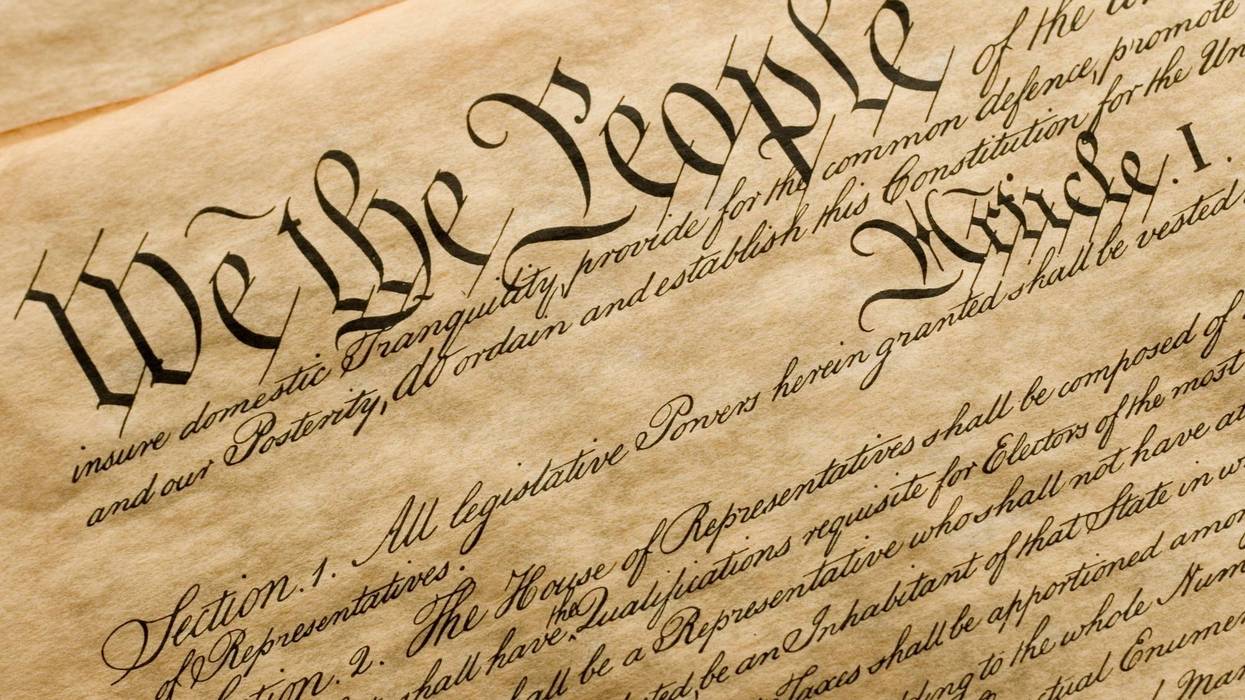 We the People of the
insure domestic Tranquility, provide for the common defence, promote
and our Posterity, do ordain and establish this Constitution for the
Article. I.
Section. 1. All legislative Powers herein granted shall be vested
of Representatives.
2. The House of Representatives shall be composed of
shall have the Qualifications requisite for Electors of the most
shall be a Representative who shall not have
be an Inhabitant of that State in
Taxes shall be apportioned
to the whole